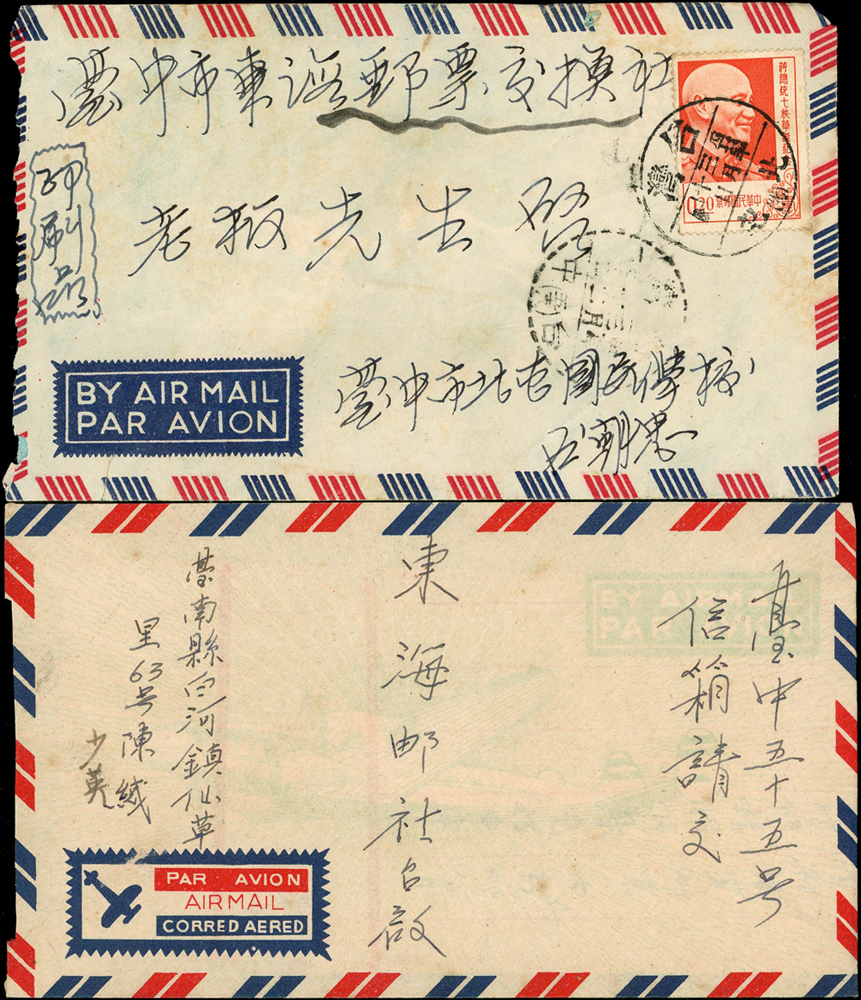 臺中市東海郵票交換社
老板先生啓
印刷品
蔣總統七秩華誕紀念
0.20 票郵國民華中
台灣
北
台中
BY AIR MAIL
PAR AVION
臺中市北屯國民學校
朝忠
臺中五十五号
信箱請交
東海邮社台啟
臺南縣白河鎮仙草
里63号陳
少英
PAR AVION
AIR MAIL
CORRED AERED
BY AIR MAIL
PAR AVION